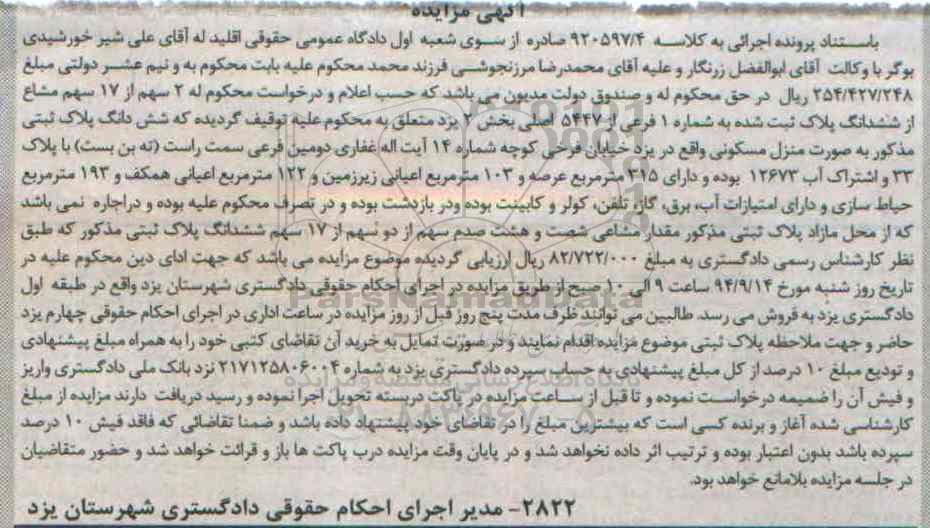 آگهی مزایده
باستناد پرونده اجرائی به کلاسه ۹۲۰۵۹۷/۴ صادره از سوی شعبه اول دادگاه عمومی حقوقی اقلید له آقای علی شیر خورشیدی
بوگر با وکالت آقای ابوالفضل زرنگار و علیه آقای محمدرضا مرزنجوشی فرزند محمد محکوم علیه بابت محکوم به و نیم عشر دولتی مبلغ
۲۵۴/۴۲۷/۲۴۸ ریال در حق محکوم له و صندوق دولت مدیون می باشد که حسب اعلام و درخواست محکوم له ۲ سهم از ۱۷ سهم مشاع
از ششدانگ پلاک ثبت شده به شماره ۱ فرعی از ۵۴۴۷ اصلی بخش ۲ یزد متعلق به محکوم علیه توقیف گردیده که شش دانگ پلاک ثبتی
مذکور به صورت منزل مسکونی واقع در یزد خیابان فرخی کوچه شماره ۱۴ آیت اله غفاری دومین فرعی سمت راست (ته بن بست) با پلاک
۳۳ و اشتراک آب ۱۲۶۷۳ بوده و دارای ۳۱۵ مترمربع عرصه و ۱۰۳ مترمربع اعیانی زیرزمین و ۱۲۲ مترمربع اعیانی همکف و ۱۹۳ مترمربع
حیاط سازی و دارای امتیازات آب، برق، گاز، تلفن، کولر و کابینت بوده ودر بازدشت بوده و در تصرف محکوم علیه بوده و دراجاره نمی باشد
که از محل مازاد پلاک ثبتی مذکور مقدار مشاعی شصت و هشت صدم سهم از دو سهم از ۱۷ سهم ششدانگ پلاک ثبتی مذکور که طبق
نظر کارشناس رسمی دادگستری به مبلغ ۸۲/۷۲۲/۰۰۰ ریال ارزیابی گردیده موضوع مزایده می باشد که جهت ادای دین محکوم علیه در
تاریخ روز شنبه مورخ ۹۴/۹/۱۴ ساعت ۹ الی ۱۰ صبح از طریق مزایده در اجرای احکام حقوقی دادگستری شهرستان یزد واقع در طبقه اول
دادگستری یزد به فروش می رسد. طالبین می توانند ظرف مدت پنج روز قبل از روز مزایده در ساعت اداری در اجرای احکام حقوقی چهارم یزد
حاضر و جهت ملاحظه پلاک ثبتی موضوع مزایده اقدام نمایند و در صورت تمایل به خرید آن تقاضای کتبی خود را به همراه مبلغ پیشنهادی
و تودیع مبلغ ۱۰ درصد از کل مبلغ پیشنهادی به حساب سپرده دادگستری یزد به شماره ۲۱۷۱۲۵۸۰۶۰۰۴ نزد بانک ملی دادگستری واریز
و فیش آن را ضمیمه درخواست نموده و تا قبل از ساعت مزایده در پاکت دربسته تحویل اجرا نموده و رسید دریافت دارند مزایده از مبلغ
کارشناسی شده آغاز و برنده کسی است که بیشترین مبلغ را در تقاضای خود پیشنهاد داده باشد و ضمنا تقاضائی که فاقد فیش ۱۰ درصد
سپرده باشد بدون اعتبار بوده و ترتیب اثر داده نخواهد شد و در پایان وقت مزایده درب پاکت ها باز و قرائت خواهد شد و حضور متقاضیان
در جلسه مزایده بلامانع خواهد بود.
۲۸۲۲- مدیر اجرای احکام حقوقی دادگستری شهرستان یزد
ParsNamadData